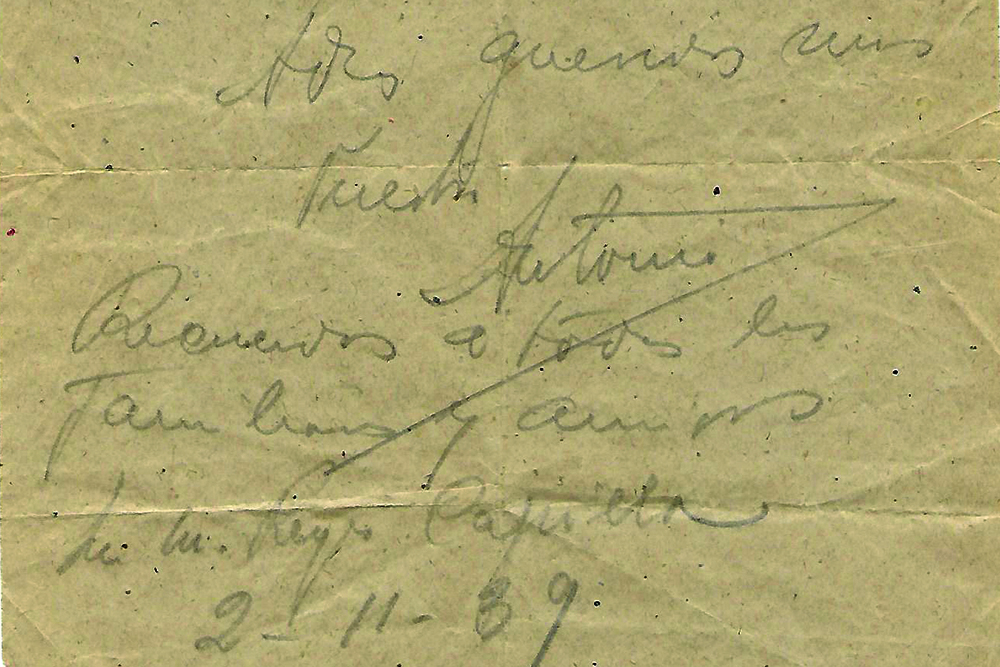 Adiós queridos mios
Vuestro
Antonio
Recuerdos a todos los
familiares y amigos
Capilla
2-11-39